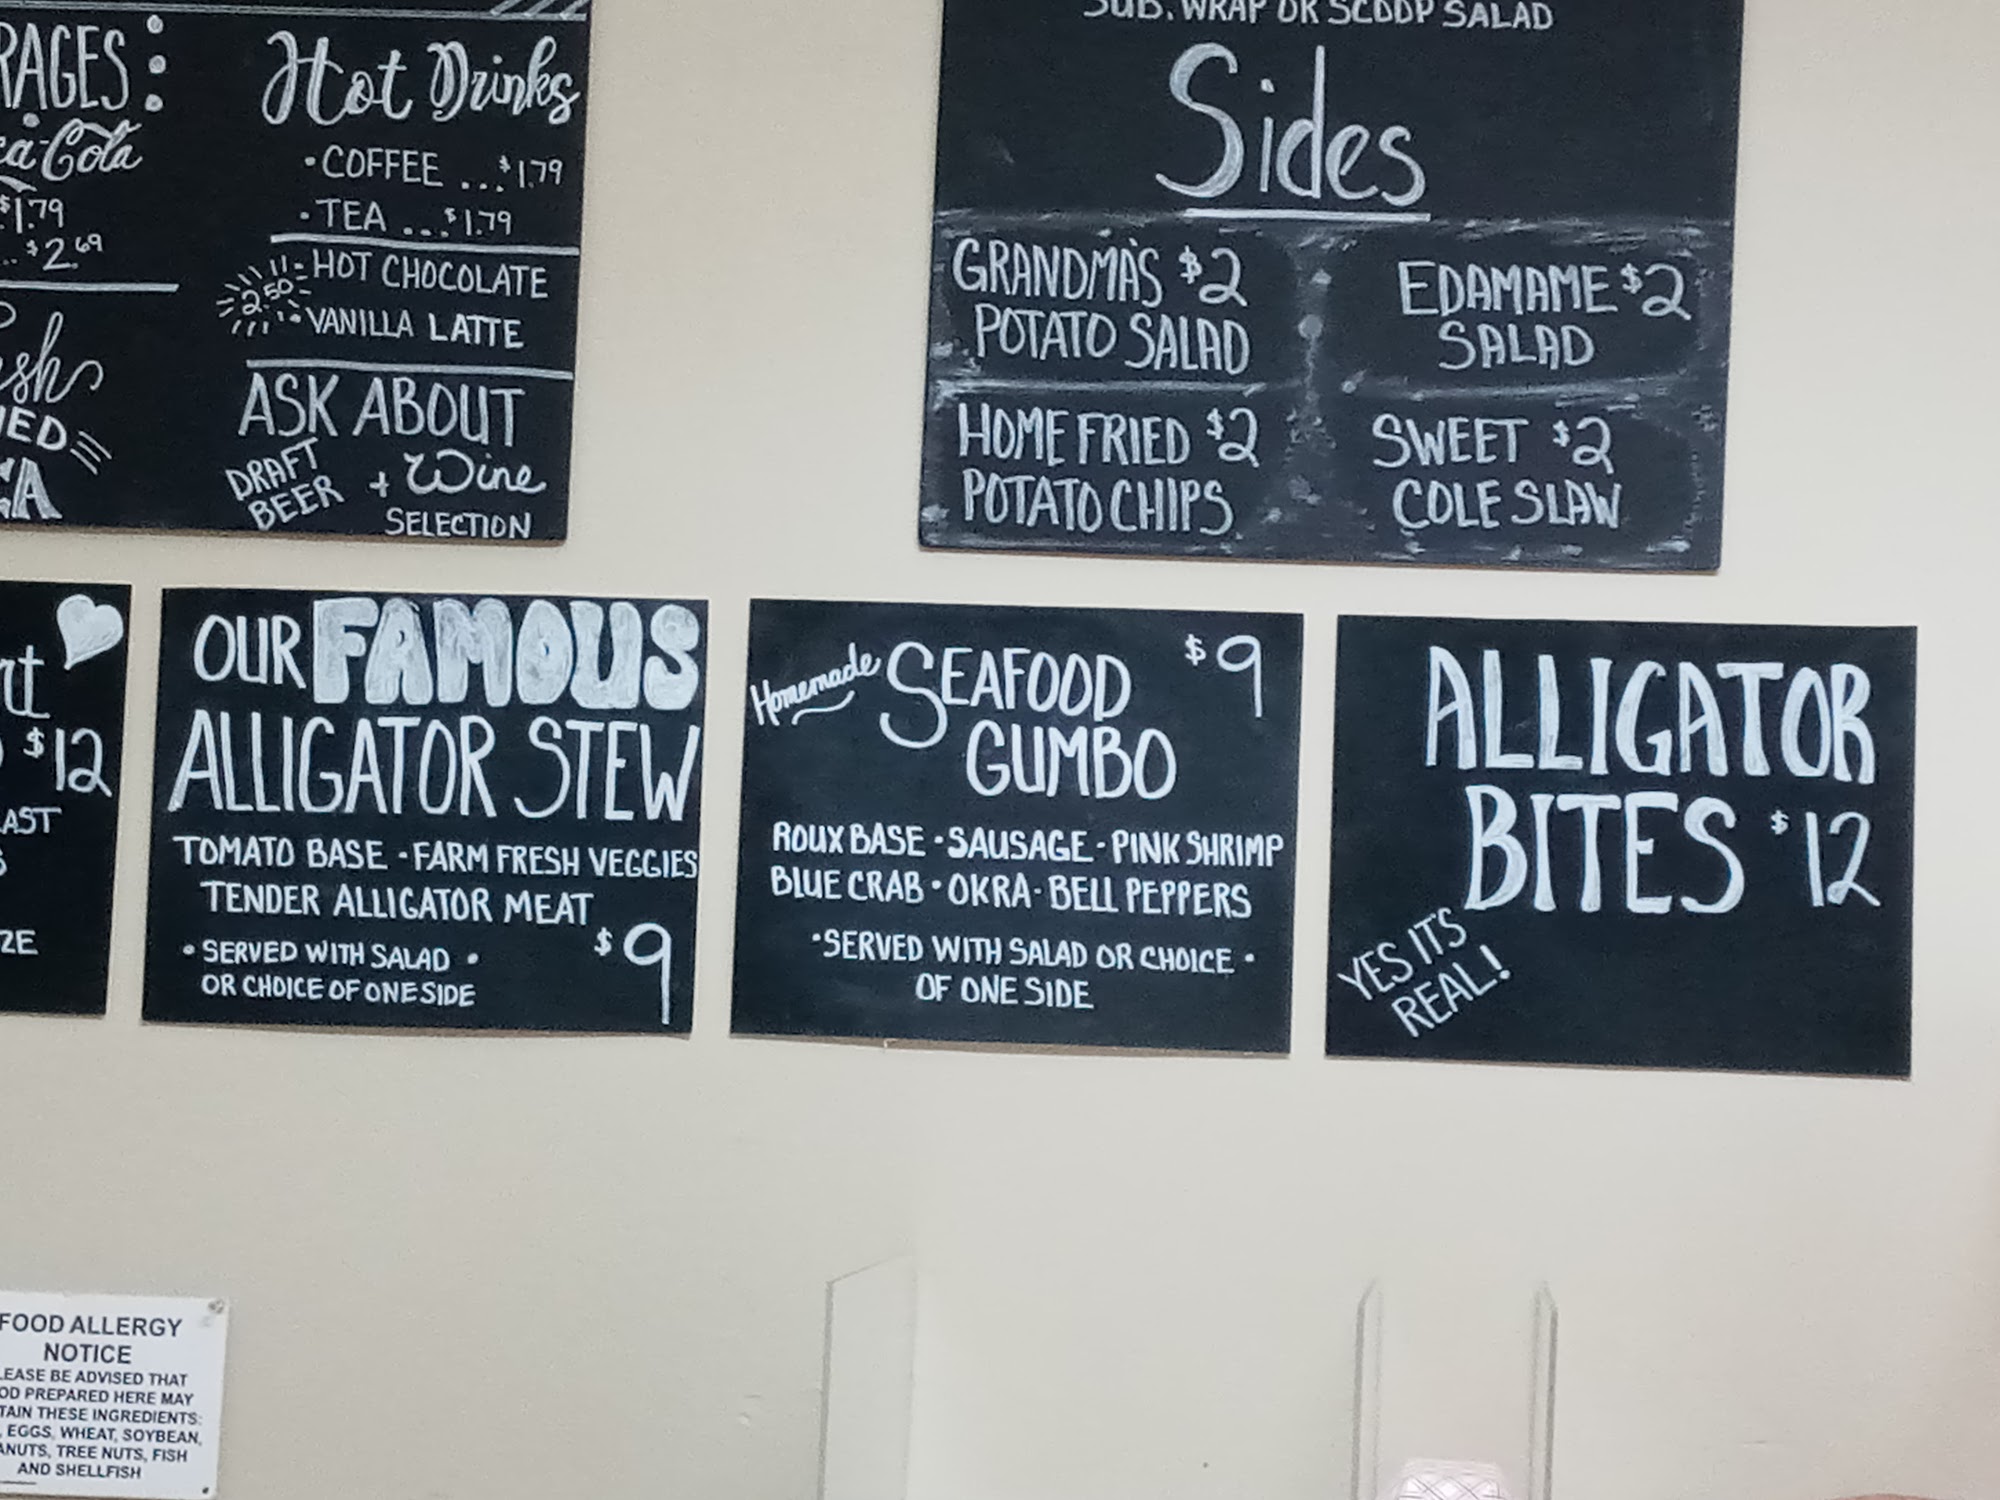 Hot Drinks
• COFFEE ... $1.79
• TEA ... $1.79
2.50
HOT CHOCOLATE
• VANILLA LATTE
ASK ABOUT
DRAFT
BEER
+ Wine
SELECTION
$1.79
.. $2.69
SUB, WRAP OR SCOOP SALAD
Sides
GRANDMA'S $2
POTATO SALAD
EDAMAME $2
SALAD
HOME FRIED $2
POTATO CHIPS
SWEET $2
COLE SLAW
$12
OUR FAMOUS
ALLIGATOR STEW
TOMATO BASE • FARM FRESH VEGGIES
TENDER ALLIGATOR MEAT
• SERVED WITH SALAD •
OR CHOICE OF ONE SIDE
$9
Homemade SEAFOOD $9
GUMBO
ROUX BASE • SAUSAGE • PINK SHRIMP
BLUE CRAB • OKRA • BELL PEPPERS
• SERVED WITH SALAD OR CHOICE •
OF ONE SIDE
ALLIGATOR
BITES $12
YES IT'S
REAL!
FOOD ALLERGY
NOTICE
LEASE BE ADVISED THAT
OD PREPARED HERE MAY
TAIN THESE INGREDIENTS:
, EGGS, WHEAT, SOYBEAN,
ANUTS, TREE NUTS, FISH
AND SHELLFISH